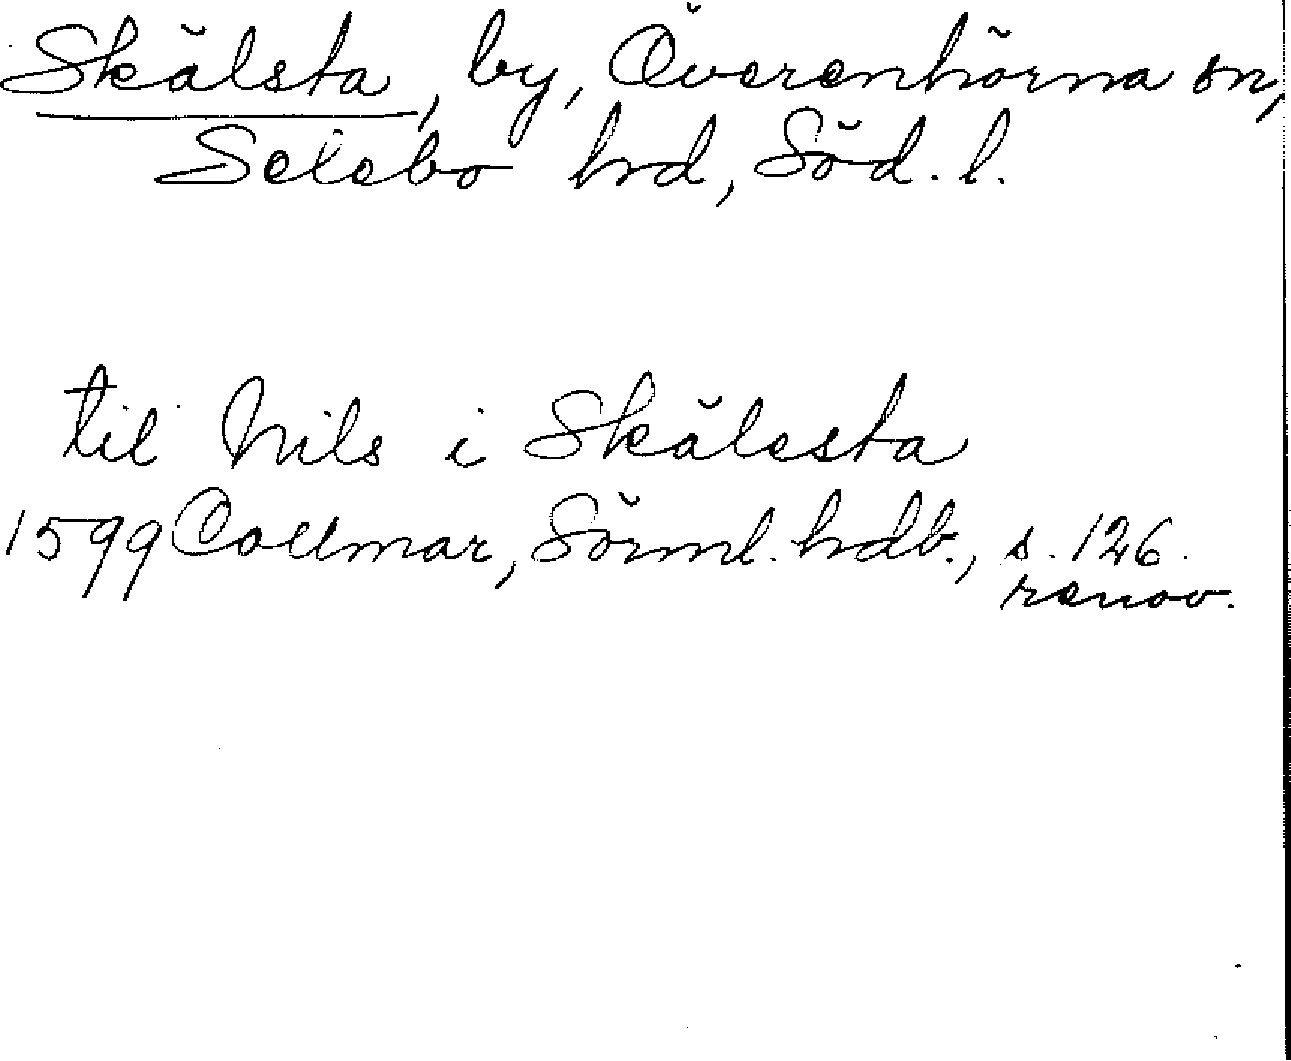 Skälsta, by, Överenhörna sn,
Selebo hrd, Söd. l.
til Nils i Skälesta
1599 Collmar, Sörml. hdb., s. 126.
renov.